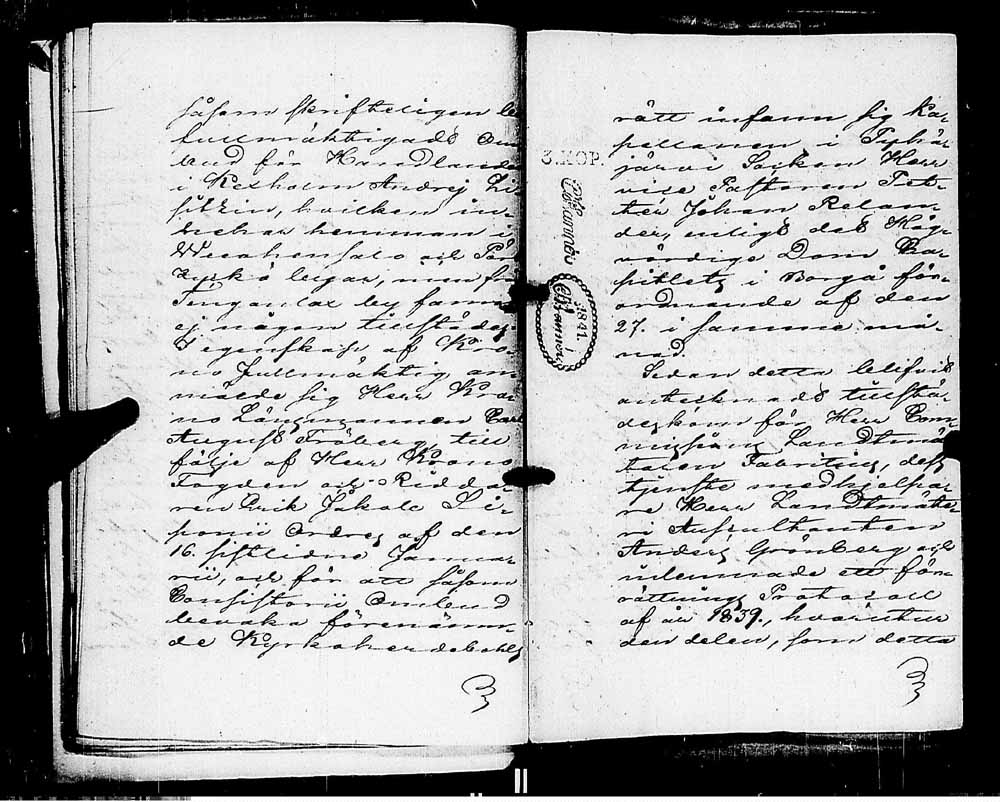 såsom skrifteligen be
fullmäktigads Om
bud för Handlande
i Kexholm Andrej Li
sitzin, hvilken in-
nehar hemman i
Weernhensalo och
kyrkö byar, men från
Tiuganlax by fanns
ej någon tillstädes.
I egenskap af Kro-
no fullmäktig an
mälde sig Herr Kro
no Länsmannen Carl
August Fröberg, till
följe af Herr Krono
Fogden och Ridda-
ren Erik Jakob Li-
ponii Ordres af den
16. sistlidne Janua-
rii, och för att såsom
Consistorii Ombud
bevaka förenämn-
de Kyrkoherdebohls
rätt infann sig Ka-
pellanen i Pyhä-
järvi Socken Herr
vice Pastoren Pet-
ter Johan Relan
der, enligt det Hög-
vördige Dom Ca-
pitlets i Borgå för-
ordnande af den
27. i samma må-
nad.
Sedan detta blifvit
antecknadt tillstä-
deskom för Herr Com-
missions Landtmä-
taren Fabritius, dess
tjenste medhjelpa-
re Herr Landtmäte-
ri Auscultanten
Anders Grönberg och
inlemnade ett för-
rättnings Protocoll
af år 1839., hvarutur
den delen, som detta
3.KOP.
1841.